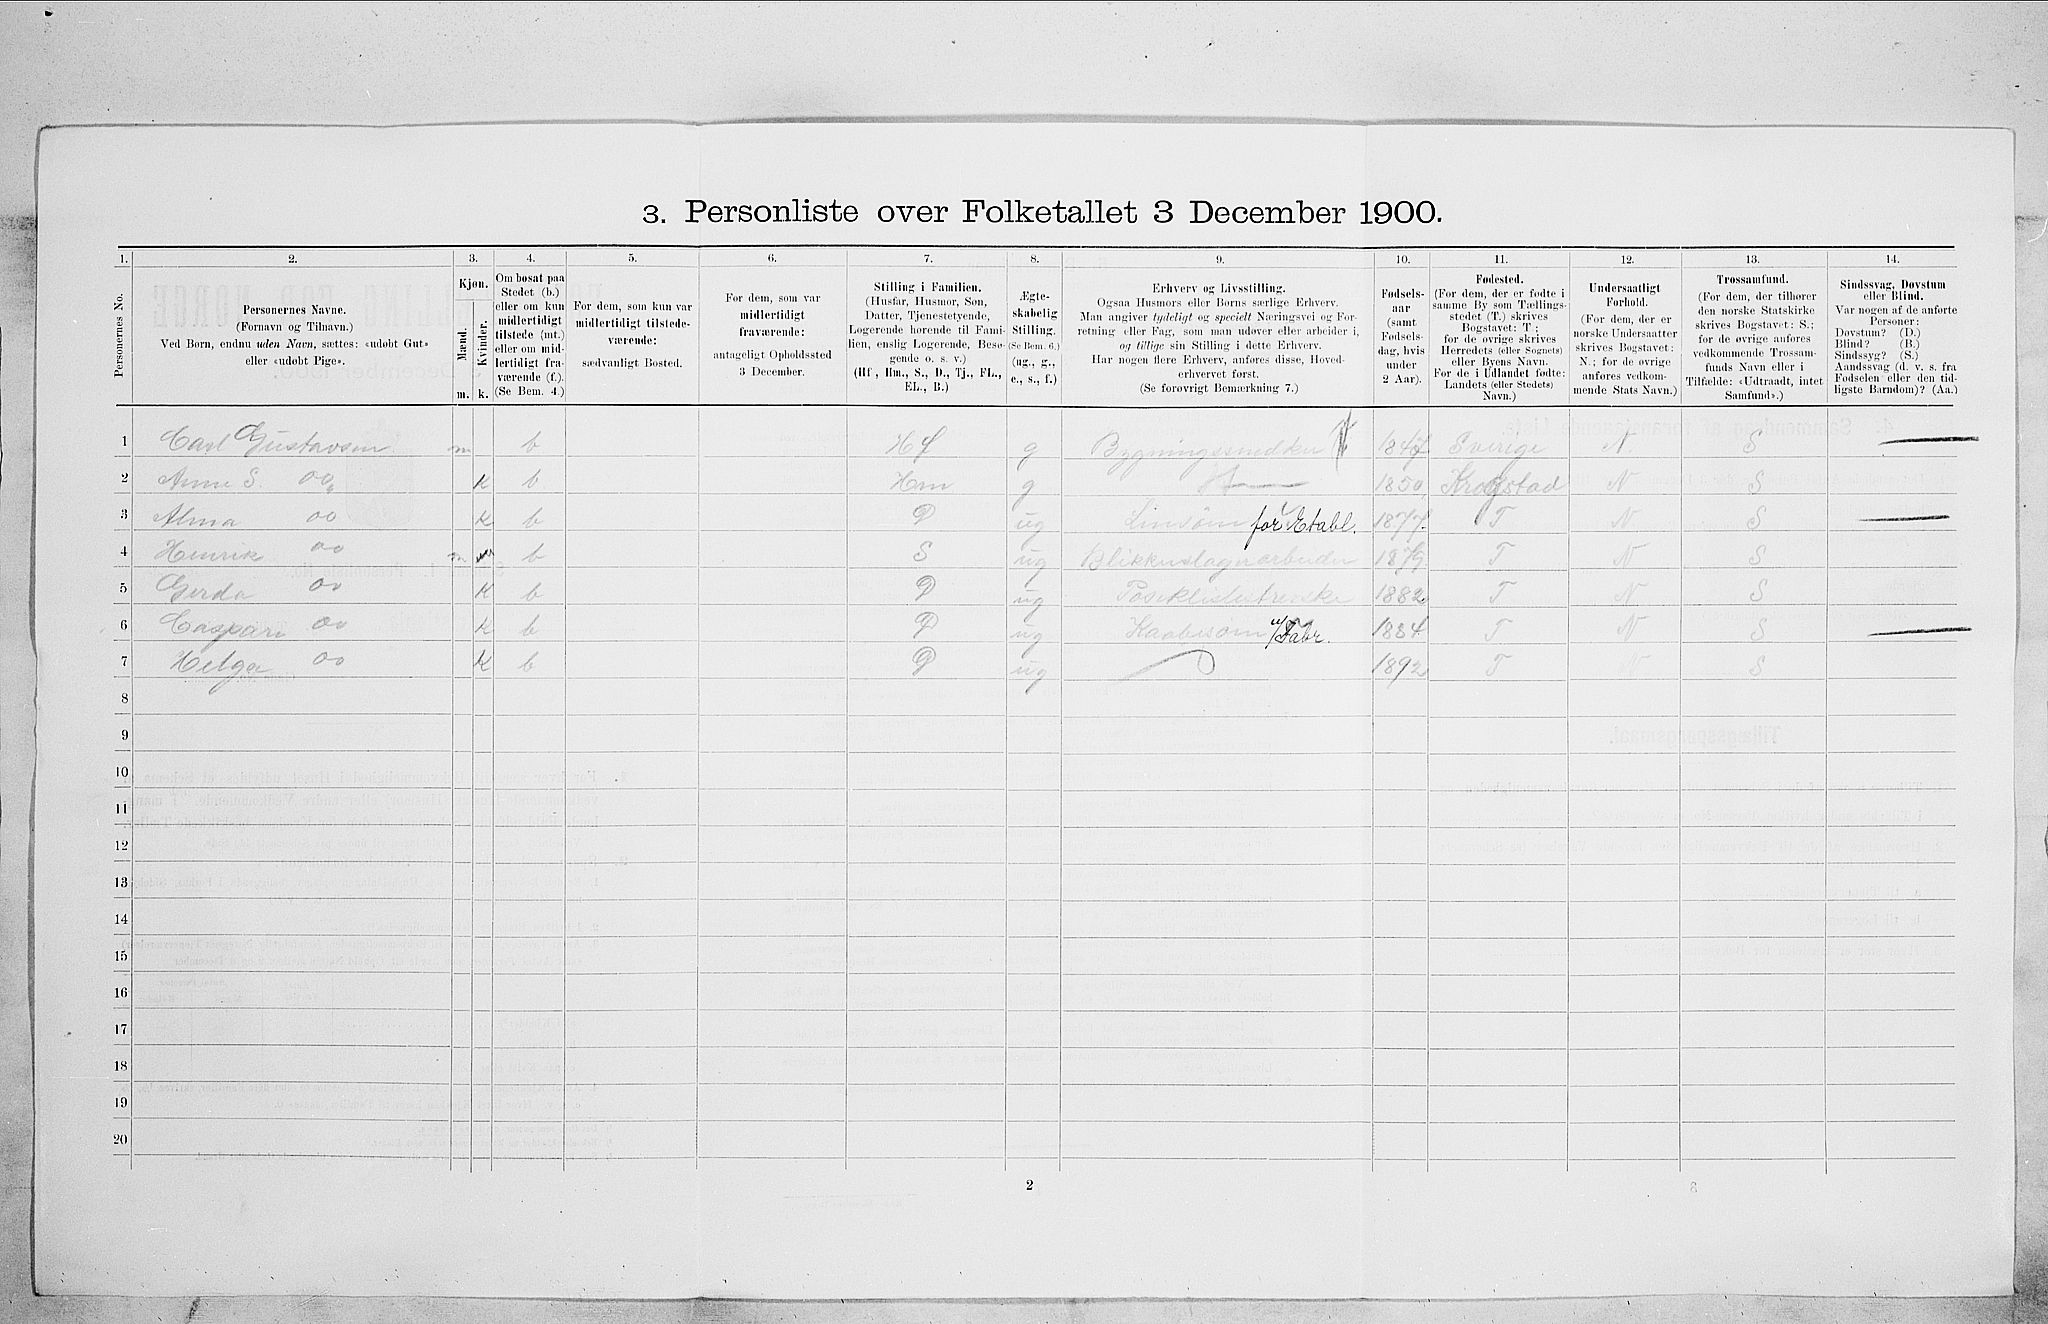 3. Personliste over Folketallet 3 December 1900.
1. 2. 3. 4. 5. 6. 7. 8. 9. 10. 11. 12. 13. 14.
Personernes No.
Personernes Navne.
(Fornavn og Tilnavn.)
Ved Børn, endnu uden Navn, sættes: «udøbt Gut»
eller «udøbt Pige».
Kjøn.
Mænd.
Kvinder.
m. k.
Om bosat paa
Stedet (b.)
eller om kun
midlertidigt
tilstede (mt.)
eller om mid-
lertidigt fra-
værende (f.).
(Se Bem. 4.)
For dem, som kun var
midlertidigt tilstede-
værende:
sædvanligt Bosted.
For dem, som var
midlertidigt
fraværende:
antageligt Opholdssted
3 December.
Stilling i Familien.
(Husfar, Husmor, Søn,
Datter, Tjenestetyende,
Logerende hørende til Fami-
lien, enslig Logerende, Besø-
gende o. s. v.)
(Hf, Hm., S., D., Tj., FL.,
EL., B.)
Ægte-
skabelig
Stilling.
(Se Bem. 6.)
(ug., g.,
e., s., f.)
Erhverv og Livsstilling.
Ogsaa Husmors eller Børns særlige Erhverv.
Man angiver tydeligt og specielt Næringsvei og For-
retning eller Fag, som man udøver eller arbeider i,
og tillige sin Stilling i dette Erhverv.
Har nogen flere Erhverv, anføres disse, Hoved-
erhvervet først.
(Se forøvrigt Bemærkning 7.)
Fødsels-
aar
(samt
Fødsels-
dag, hvis
under
2 Aar).
Fødested.
(For dem, der er fødte i
samme By som Tællings-
stedet (T.) skrives
Bogstavet: T;
for de øvrige skrives
Herredets (eller Sognets)
eller Byens Navn.
For de i Udlandet fødte:
Landets (eller Stedets)
Navn.)
Undersaatligt
Forhold.
(For dem, der er
norske Undersaatter
skrives Bogstavet:
N.; for de øvrige
anføres vedkom-
mende Stats Navn.)
Trossamfund.
(For dem, der tilhører
den norske Statskirke
skrives Bogstavet: S.;
for de øvrige anføres
vedkommende Trossam-
funds Navn eller i
Tilfælde: «Udtraadt, intet
Samfund».)
Sindssvag, Døvstum
eller Blind.
Var nogen af de anførte
Personer:
Døvstum? (D.)
Blind? (B.)
Sindssyg? (S.)
Aandssvag (d. v. s. fra
Fødselen eller den tid-
ligste Barndom)? (Aa.)
1 Carl Gustavsen m b Hf g Bygningssnedker 1847 Sverige N. S
2 Anne S. oo K b Hm g 1850 Krogstad N S
3 Alma oo K b D ug Linsøm for Etabl. 1877 T N S
4 Henrik oo m b S ug Blikkenslagerarbeider 1879 T N S
5 Gerda oo K b D ug 1882 T N S
6 oo K b D ug Kaabesøm v/Fabr. 1884 T N S
7 Helga oo K b D ug 1892 T N S
8
9
10
11
12
13
14
15
16
17
18
19
20
2